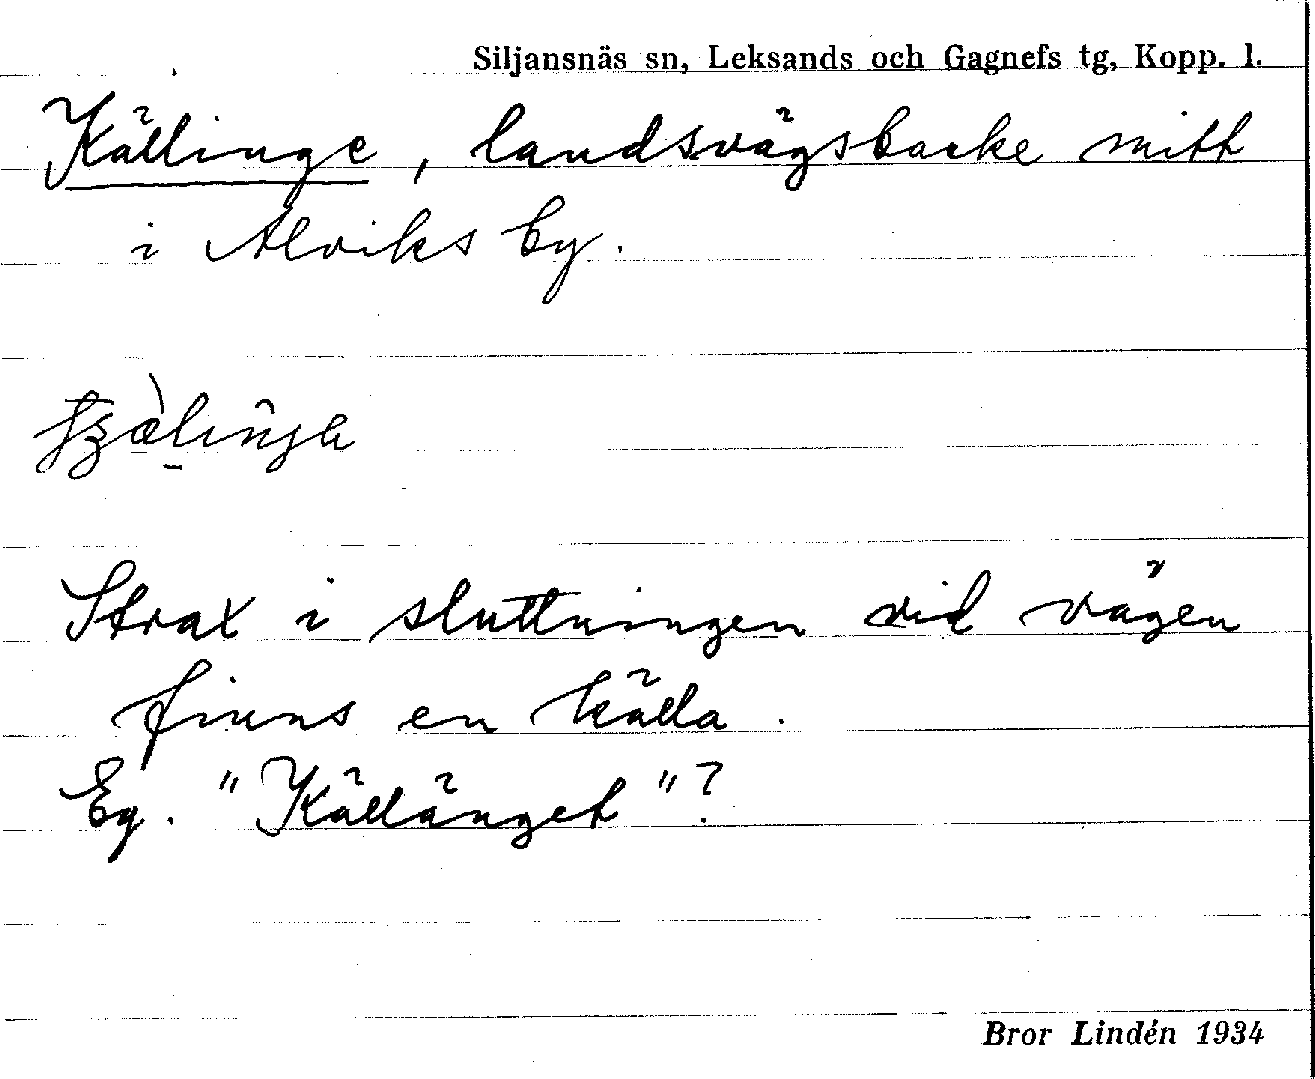 Siljansnäs sn, Leksands och Gagnefs tg, Kopp. l.
Källinge, landsvägsbacke mitt
i Alviks by.
Strax i sluttningen vid vägen
finns en källa.
Eg. "Källänget"?
Bror Lindén 1934